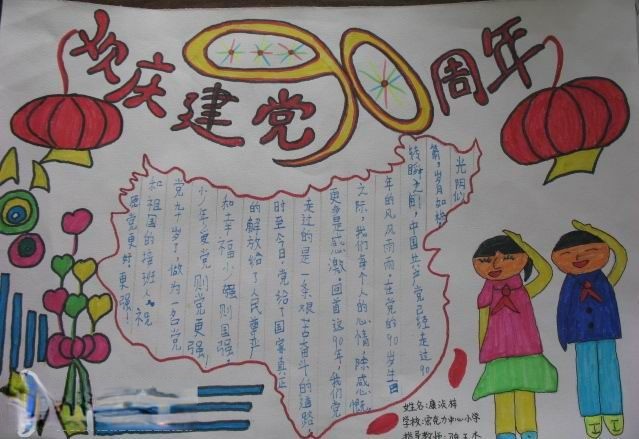 欢庆建党90周年
光阴似
箭,岁月如梭
转瞬之间,中国共产党已经走过90
年的风风雨雨,在党的90岁生日
之际,我们每个人的心情除感慨
更多是感激。回首这90年,我们党
走过的是一条艰苦奋斗的道路,
时至今日,党给了国家真正
的解放给了人民尊严
和幸福少强则国强,
少年爱党则党更强,
党九十岁了,做为一名党
和祖国的接班人,祝
愿党更好,更强!
姓名:康
学校:宏克力中心小学
指导教师: